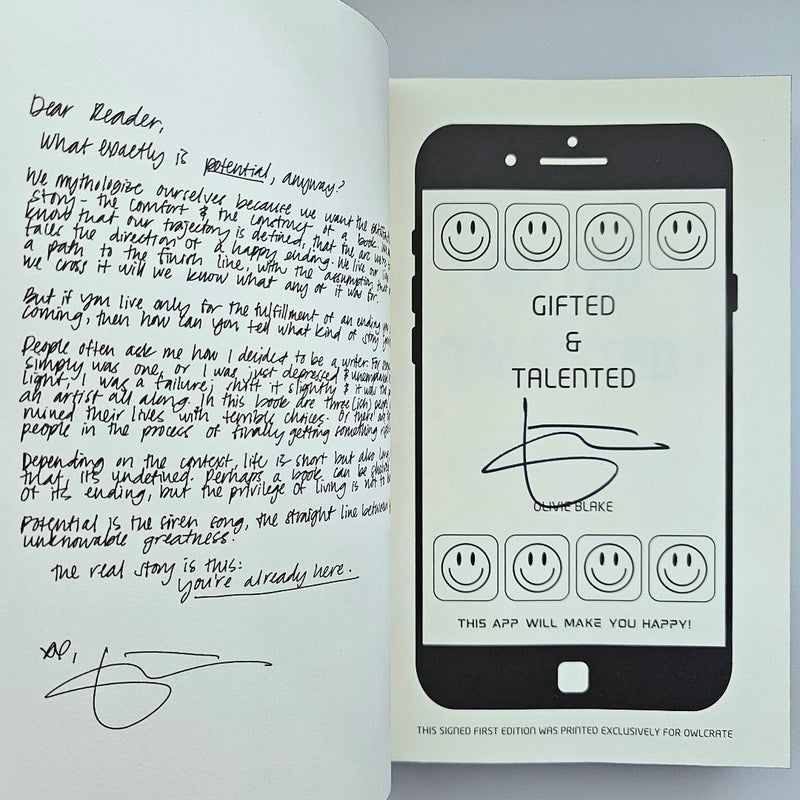 Dear Reader,
What exactly is potential, anyway?
We mythologize ourselves because we want the
story - the comfort & the construct of a book.
know that our trajectory is defined, that the arc
takes the direction of a happy ending. We live our
a path to the finish line, with the assumption that
we cross it will we know what any of it was for.
But if you live only for the fulfillment of an ending
coming, then how can you tell what kind of story
People often ask me how I decided to be a writer. For
simply was one, or I was just depressed &
light, I was a failure; shift it slightly & it was
an artist all along. In this book are three (ish)
ruined their lives with terrible choices. Or there
people in the process of finally getting something
Depending on the context, life is short but also
that, it's undefined. Perhaps a book can be
of its ending, but the privilege of living is not to
Potential is the siren song, the straight line between
unknowable greatness.
The real story is this:
you're already here.
GIFTED
&
TALENTED
OLIVIE BLAKE
THIS APP WILL MAKE YOU HAPPY!
THIS SIGNED FIRST EDITION WAS PRINTED EXCLUSIVELY FOR OWLCRATE